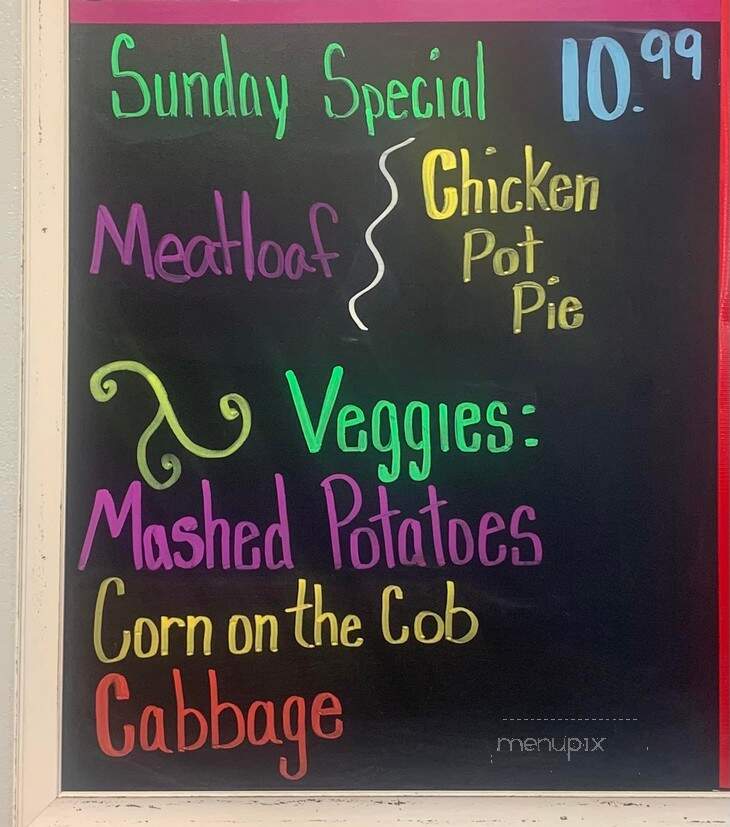 Sunday Special 10.99
Meatloaf
Chicken
Pot
Pie
Veggies:
Mashed Potatoes
Corn on the Cob
Cabbage
menupix